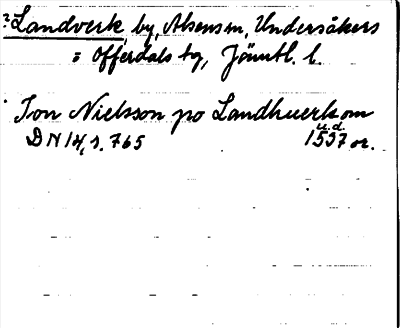 ?Landverk by, Alsens sn, Undersåkers
= Offerdals tg, Jämtl. l.
Ion Nielsson po Landhuerk om
u.d.
DN 14, s. 765 1537 or.